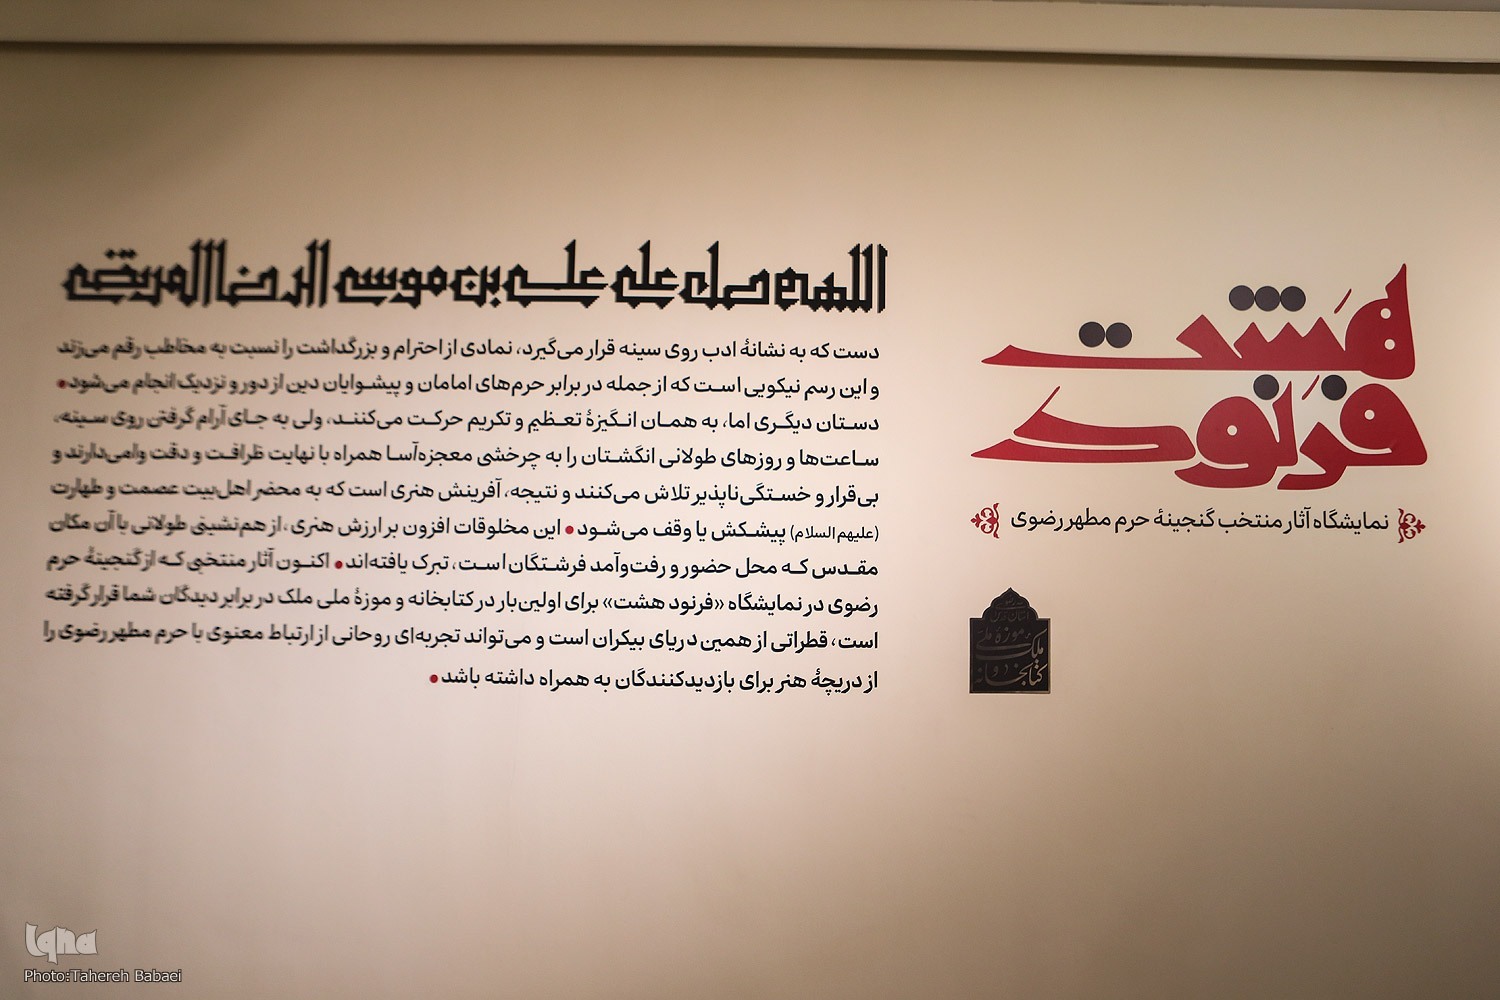 هشت
فرنود
نمایشگاه آثار منتخب گنجینهٔ حرم مطهر رضوی
موزهٔ ملی
ملک
کتابخانه و
اللهم صل علی علی بن موسی الرضا المرتضی
دست که به نشانهٔ ادب روی سینه قرار می‌گیرد، نمادی از احترام و بزرگداشت را نسبت به مخاطب رقم می‌زند
و این رسم نیکویی است که از جمله در برابر حرم‌های امامان و پیشوایان دین از دور و نزدیک انجام می‌شود•
دستان دیگری اما، به همان انگیزهٔ تعظیم و تکریم حرکت می‌کنند، ولی به جای آرام گرفتن روی سینه،
ساعت‌ها و روزهای طولانی انگشتان را به چرخشی معجزه‌آسا همراه با نهایت ظرافت و دقت وامی‌دارند و
بی‌قرار و خستگی‌ناپذیر تلاش می‌کنند و نتیجه، آفرینش هنری است که به محضر اهل‌بیت عصمت و طهارت
(علیهم السلام) پیشکش یا وقف می‌شود• این مخلوقات افزون بر ارزش هنری، از هم‌نشینی طولانی با آن مکان
مقدس که محل حضور و رفت‌وآمد فرشتگان است، تبرک یافته‌اند• اکنون آثار منتخبی که از گنجینهٔ حرم
رضوی در نمایشگاه «فرنود هشت» برای اولین‌بار در کتابخانه و موزهٔ ملی ملک در برابر دیدگان شما قرار گرفته
است، قطراتی از همین دریای بیکران است و می‌تواند تجربه‌ای روحانی از ارتباط معنوی با حرم مطهر رضوی را
از دریچهٔ هنر برای بازدیدکنندگان به همراه داشته باشد•
Iqna
Photo:Tahereh Babaei